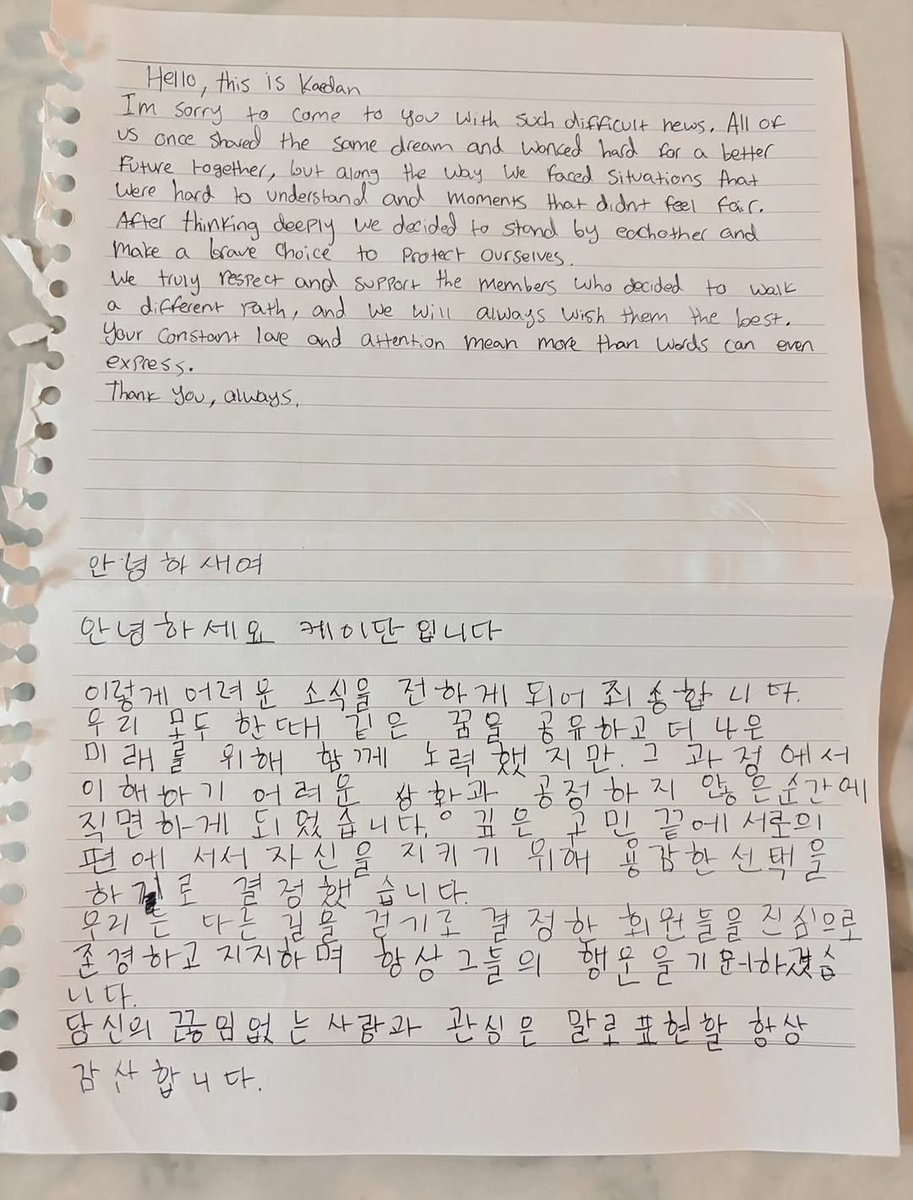 Hello, this is Kaedan
Im sorry to come to you with such difficult news. All of
us once shared the same dream and worked hard for a better
future together, but along the way we faced situations that
were hard to understand and moments that didnt feel fair.
After thinking deeply we decided to stand by eachother and
make a brave choice to protect ourselves.
We truly respect and support the members who decided to walk
a different path, and we will always wish them the best.
Your constant love and attention mean more than words can even
express.
Thank you, always.
안녕하새여
안녕하세요 케이단입니다
이렇게 어려운 소식을 전하게 되어 죄송합니다.
우리 모두 한때 같은 꿈을 공유하고 더 나은
미래를 위해 함께 노력했지만. 그 과정에서
이해하기 어려운 상황과 공정하지 않은 순간에
직면하게 되었습니다. 깊은 고민 끝에 서로의
편에 서서 자신을 지키기 위해 용감한 선택을
하기로 결정했습니다.
우리는 다른 길을 걷기로 결정한 회원들을 진심으로
존경하고 지지하며 항상 그들의 행운을 하겠습
니다.
당신의 끊임없는 사랑과 관심은 말로 표현할 항상
감사합니다.